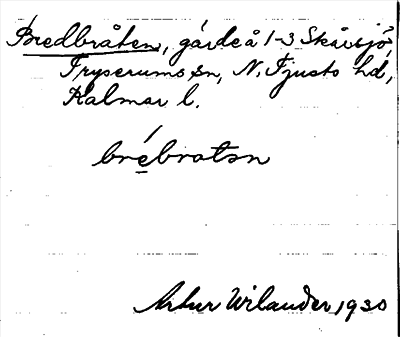 Bredbråten, gård å 1-3 Skårsjö,
Tryserums sn, N. Tjusts hd,
Kalmar l.
brébrotən
Artur Wilander 1930